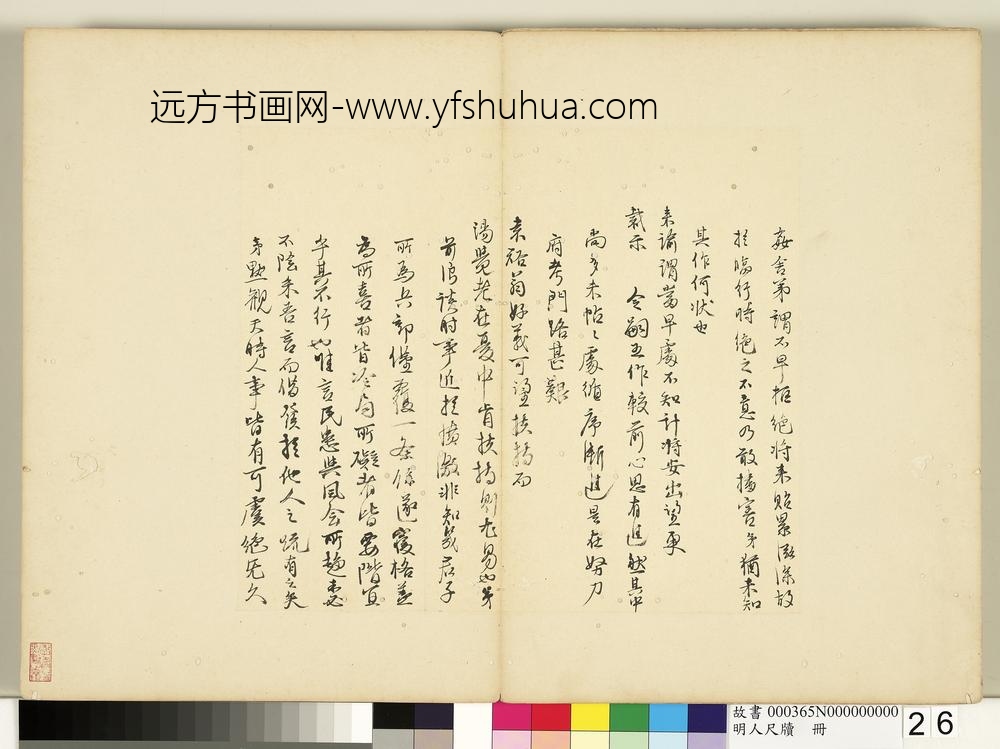 远方书画网-www.yfshuhua.com
舍弟謂不早拒絕將來貽累滋深故
於臨行時絕之不意乃敢播害弟猶未知
其作何狀也
來諭謂當早處不知計將安出望更
裁示 令嗣五作較前心思有進然其中
尚多未帖帖處循序漸進是在努力
府考門路甚艱
袁裕翁好義可望扶持而
湯霓老在憂中肯扶持則尤易也弟
前浪談時事近於憤激非知幾君子
所為兵部僅覆一条餘遂寢格蓋
為所喜者皆冷局所礙者皆要階宜
乎其不行也惟言民患與風会所趨未必
不陰采吾言而借發於他人之疏有之矣
弟默觀天時人事皆有可虞絕
故書 000365N000000000
明人尺牘 冊
26